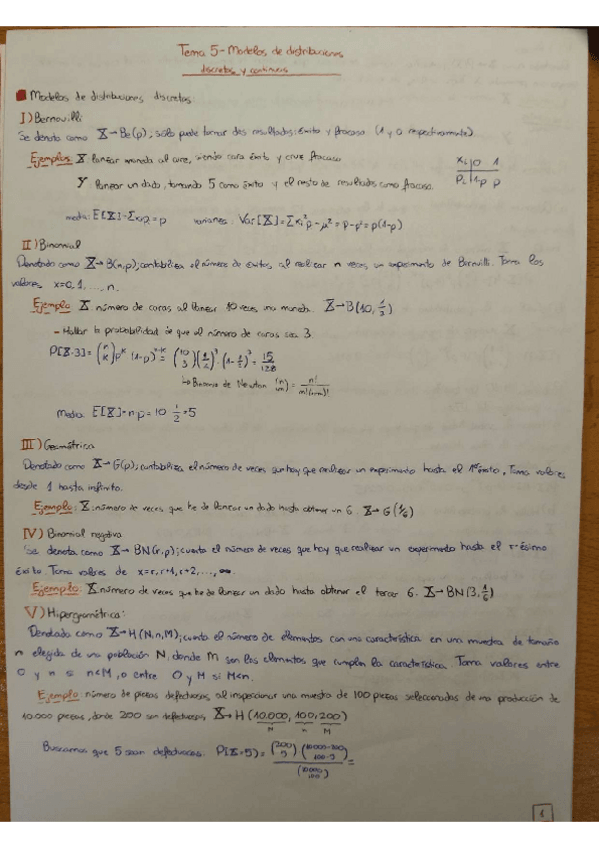 Tema 5 - Modelos de distribuciones
discretos y continuos
Modelos de distribuciones discretos
I) Bernouilli
Se denota como X→Be(p); sólo puede tomar dos resultados: éxito y fracaso (1 y 0 respectivamente)
Ejemplos X: lanzar moneda al aire, siendo cara éxito y cruz fracaso
xi | 0 1
Pi | 1-p p
Y: lanzar un dado, tomando 5 como éxito y el resto de resultados como fracaso.
media: E[X]=Σxipi=p varianza: Var[X]=Σxi²p-μ²=p-p²=p(1-p)
II) Binomial
Denotado como X→B(n,p); contabiliza el número de éxitos al realizar n veces un experimento de Bernuilli. Toma los
valores x=0,1,...,n.
Ejemplo X: número de caras al lanzar 10 veces una moneda. X→B(10,
- Hallar la probabilidad de que el número de caras sea 3.
P[X=3]= (n k) p^k (1-p)^n-k = (10 3) = 15/128
↳Binomio de Newton (n m) = n!/m!(n-m)!
Media: E[X]=n·p=10·1/2=5
III) Geométrica
Denotado como X→G(p); contabiliza el número de veces que hay que realizar un experimento hasta el 1er éxito. Toma valores
desde 1 hasta infinito.
Ejemplo: X: número de veces que he de lanzar un dado hasta obtener un 6. X→G(1/6)
IV) Binomial negativa
Se denota como X→BN(r,p); cuenta el número de veces que hay que realizar un experimento hasta el r-ésimo
éxito. Toma valores de x=r,r+1,r+2,...,∞.
Ejemplo: X: número de veces que he de lanzar un dado hasta obtener el tercer 6. X→BN(3,1/6)
V) Hipergométrica:
Denotado como X→H(N,n,M); cuenta el número de elementos con una característica en una muestra de tamaño
n elegida de una población N, donde M son los elementos que cumplen la característica. Toma valores entre
0 y n si n<M, o entre 0 y M si M<n.
Ejemplo: número de piezas defectuosas al inspeccionar una muestra de 100 piezas seleccionadas de una producción de
10.000 piezas, donde 200 son defectuosas, X→H(10.000, 100, 200)
n M
Buscamos que 5 sean defectuosas. P(X=5)= (200 5) (10000-200 100-5) / (10000 100) =
1